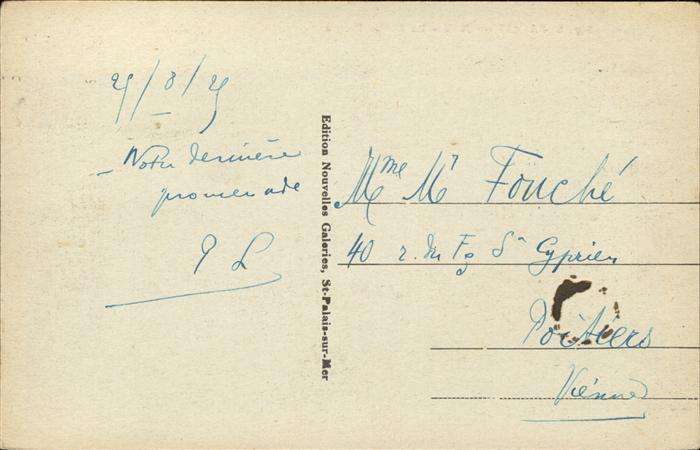 Notre dernière
promenade
P L
Edition Nouvelles Galeries, St-Palais-sur-Mer
Mme Mr Fouché
40 r. du Fg St Cyprien
Poitiers
Vienne